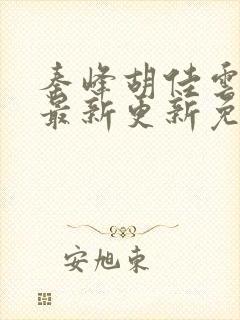 秦峰胡佳雲
最新更新免
安旭東